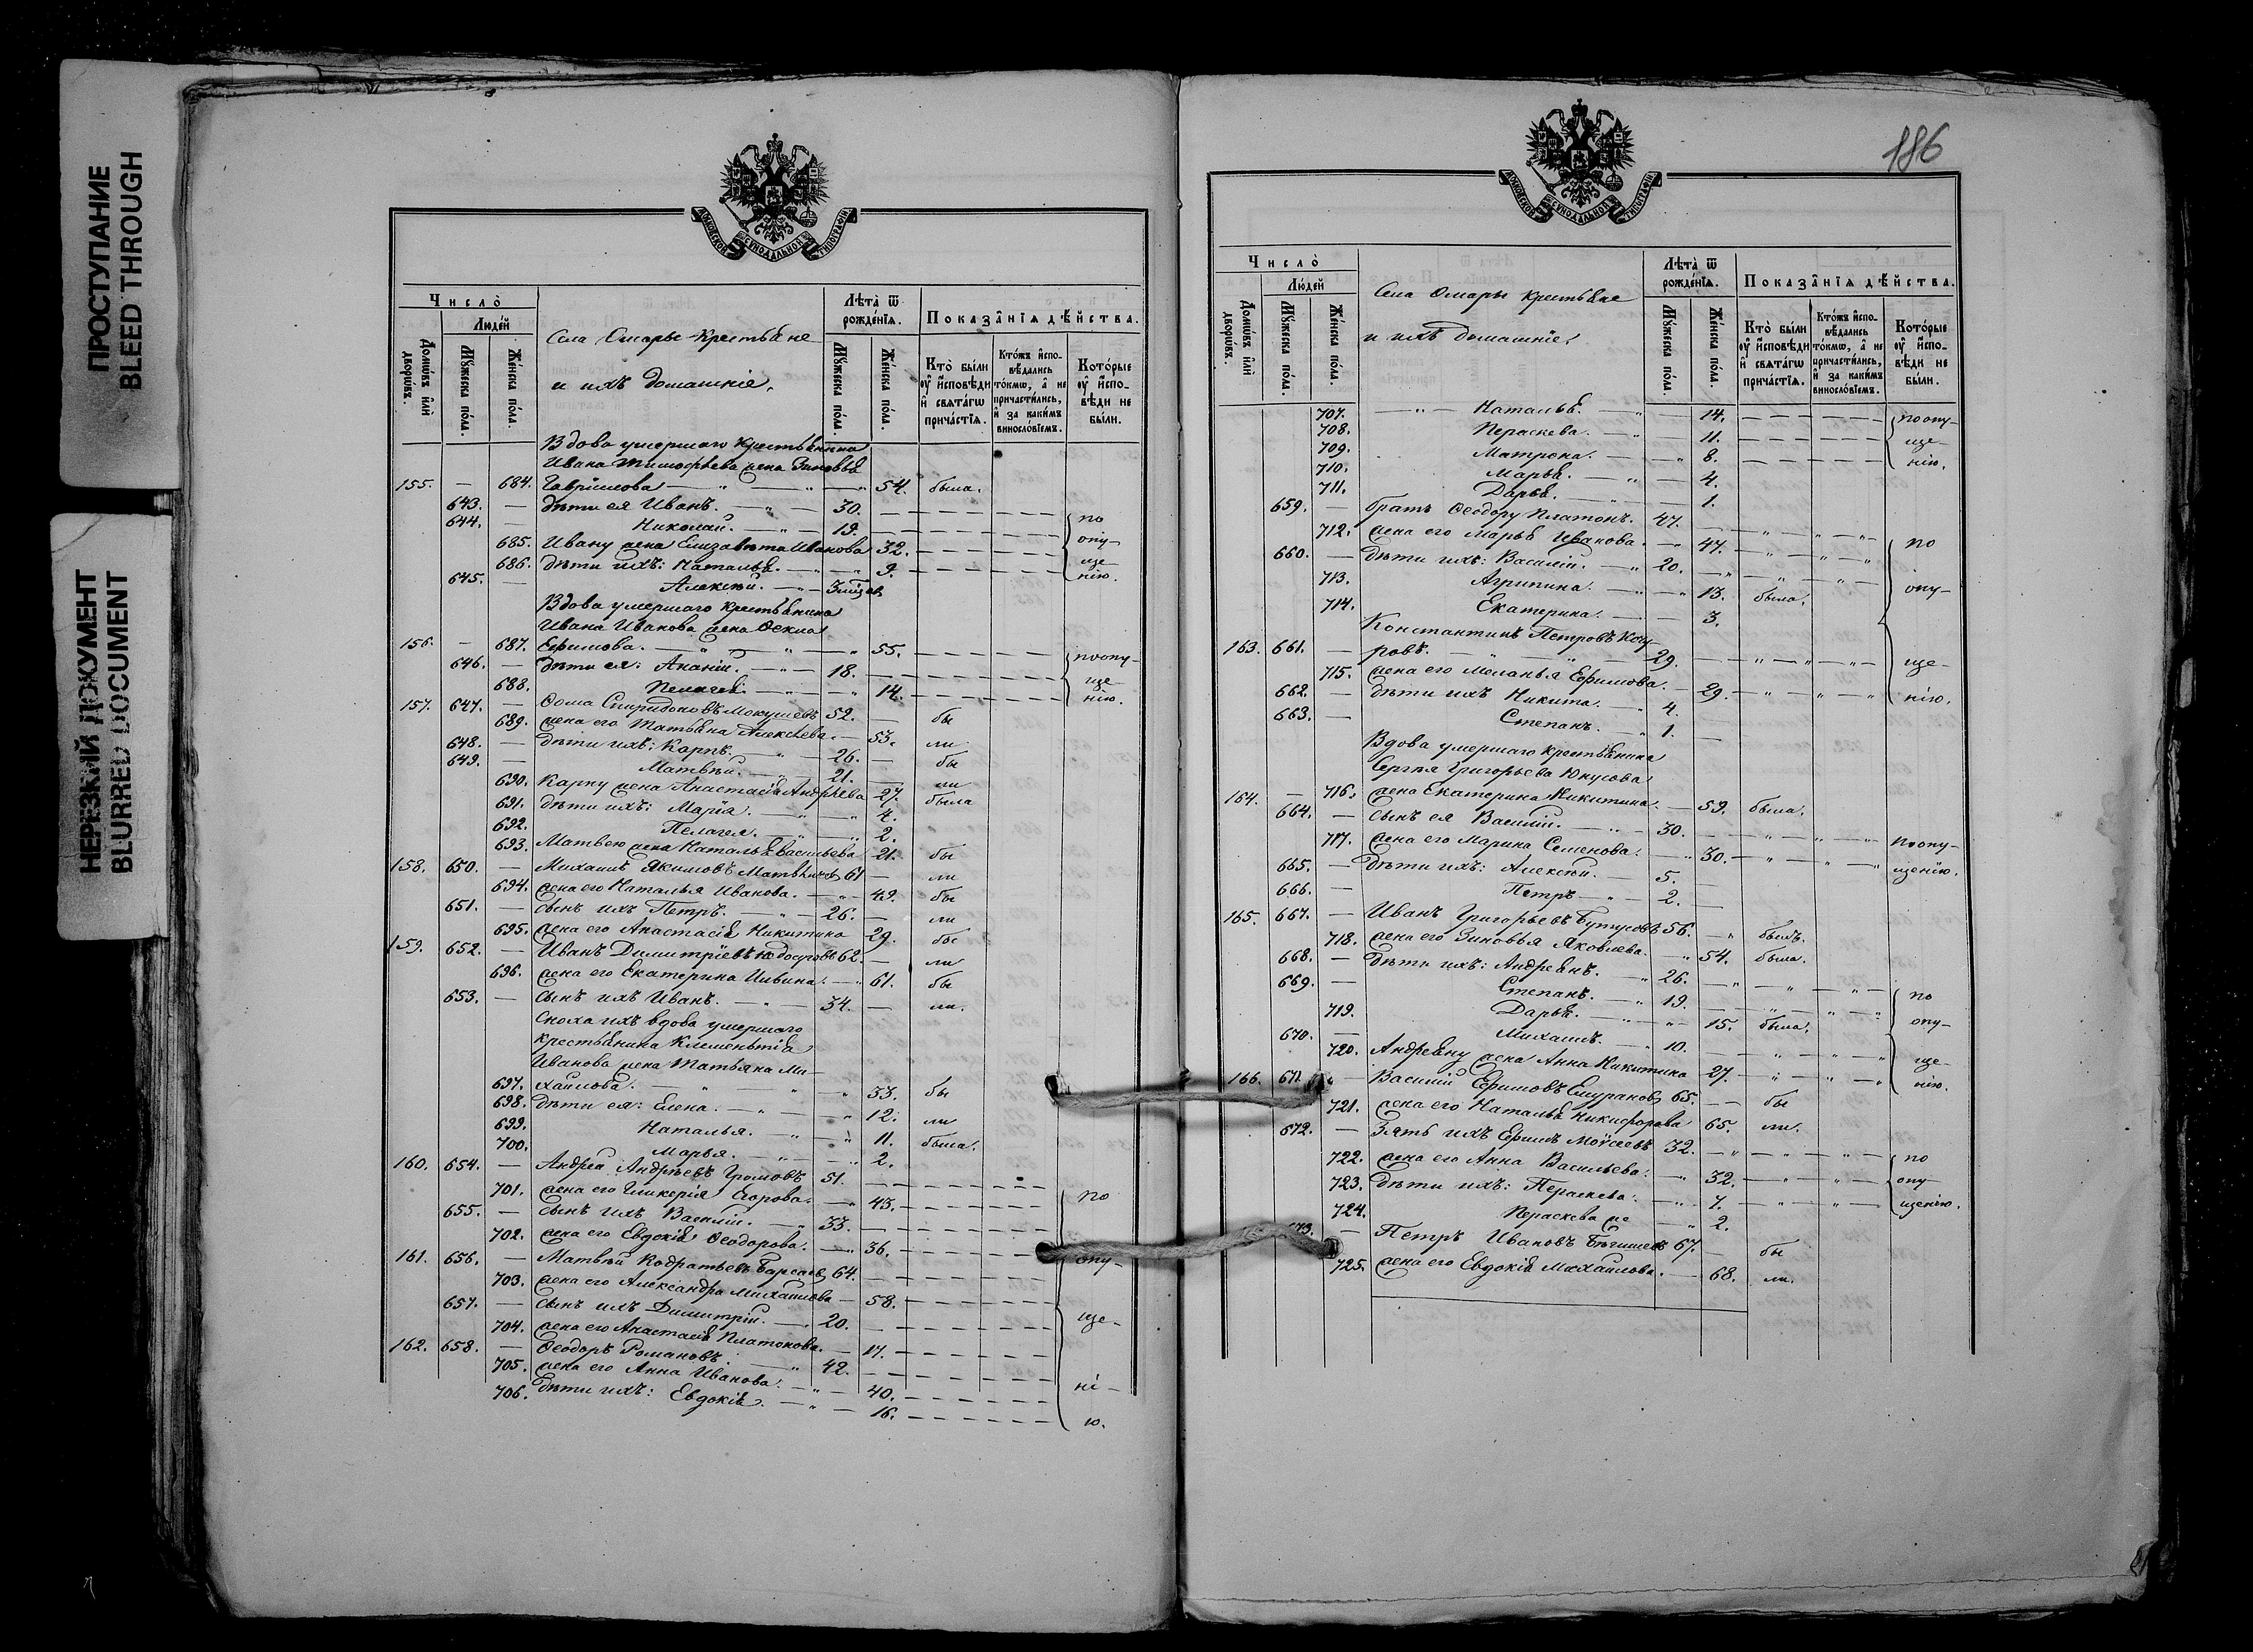 ПРОСТУПАНИЕ
BLEED THROUGH
НЕРЕЗКИЙ ДОКУМЕНТ
BLURRED DOCUMENT
МОСКОВСКОЙ СѴНОДАЛЬНОЙ ТИПОГРАФІИ
Число̀
Люде́й
Домѡ́въ и҆лѝ дворѡ́въ.
Мꙋ́жеска по́ла.
Же́нска по́ла.
Села Омары Крестьяне
и ихъ домашніе,
Лѣта̀ ѿ рожде́нїѧ.
Мꙋ́жеска по́ла.
Же́нска по́ла.
Показа̑нїѧ дѣ́йства.
Кто̀ бы́ли ᲂу҆ и҆сповѣ́ди и҆ свѧта́гѡ причастїѧ.
Кто́жъ и҆спо-вѣ́дались то́кмѡ, а҆ не причасти́лись, и҆ за каки́мъ винословїемъ.
Кото́рые ᲂу҆ и҆спо-вѣ́ди не бы́ли.
Вдова умершаго Крестьянина
Ивана Тимофѣева жена Зиновья
155. — 684. Гавріилова — " — " — " 54. была.
643. — дѣти ея Иванъ. — " — 30.
644. — Николай. — " — 19.
685. Ивану жена Елизавета Иванова 32.
686. дѣти ихъ: Наталья. — " — " 9.
645. — Алексѣй. — " —
по опу-ще-нію.
Вдова умершаго крестьянина
Ивана Иванова жена Ѳекла
156. — 687. Ефимова. — " — " — " 55.
646. — дѣти ея: Ананій. — " — 18.
688. Пелагея. — " — " 14.
по опу-ще-нію.
157. 647. — Ѳома Спиридоновъ Мокушевъ 52. — бы
689. жена его Татьяна Алексѣева. — 53. ли
648. — дѣти ихъ: Карпъ. — " — 26. — бы
649. — Матвѣй. — " — 21. — ли
690. Карпу жена Анастасія Андрѣева 27. была
691. дѣти ихъ: Марія. — " — " 4.
692. Пелагея. — " — " 2.
693. Матвею жена Наталья Васильева 21. бы
158. 650. — Михаилъ Якимовъ Матвѣичевъ 61 — ли
694. жена его Наталья Иванова. — " — 49. бы
651. — сынъ ихъ Петръ. — " — 26. — ли
695. жена его Анастасія Никитина 29. бы
159. 652. — Иванъ Димитріевъ 62. — ли
696. жена его Екатерина Ильина. — " 61. бы
653. — сынъ ихъ Иванъ. — " — 34. — ли.
Сноха ихъ вдова умершаго
крестьянина Климентія
Иванова жена Татьяна Ми-
697. хайлова. — " — " — " 33. бы
698. дѣти ея: Елена. — " — " 12. ли
699. Наталья. — " — " 11. была.
700. Марья. — " — " 2.
160. 654. — Андрей Андрѣевъ Громовъ 51.
701. жена его Гликерія Егорова. — " 43.
655. — сынъ ихъ Василій. — " 33.
702. жена его Евдокія Ѳеодорова. — " 36.
161. 656. — Матвѣй Кодратьевъ Барсаевъ 64.
703. жена его Александра Михайлова — 58.
657. — сынъ ихъ Димитрій. — " 20.
704. жена его Анастасія Платонова. — 17.
162. 658. — Ѳеодоръ Романовъ. — " 42.
705. жена его Анна Иванова. — " — 40.
706. дѣти ихъ: Евдокія. — " — 16.
по опу-ще-ні-ю.
186
МОСКОВСКОЙ СѴНОДАЛЬНОЙ ТИПОГРАФІИ
Число̀
Люде́й
Домѡ́въ и҆лѝ дворѡ́въ.
Мꙋ́жеска по́ла.
Же́нска по́ла.
Села Омары крестьяне
и ихъ домашніе
Лѣта̀ ѿ рожде́нїѧ.
Мꙋ́жеска по́ла.
Же́нска по́ла.
Показа̑нїѧ дѣ́йства.
Кто̀ бы́ли ᲂу҆ и҆сповѣ́ди и҆ свѧта́гѡ причастїѧ.
Кто́жъ и҆спо-вѣ́дались то́кмѡ, а҆ не причасти́лись, и҆ за каки́мъ винословїемъ.
Кото́рые ᲂу҆ и҆спо-вѣ́ди не бы́ли.
707. — " — Наталья. — " — 14.
708. Пераскева. — " — 11.
709. Матрона. — " 8.
710. Марья. — " — 4.
711. Дарья. — 1.
по опу-ще-нію.
659. — братъ Ѳеодору Платонъ. 47.
712. жена его Марья Иванова. — " 47.
660. — дѣти ихъ: Василій. — " 20.
713. Агрипина. — " — " 13. была.
714. Екатерина. — — 3.
Константинъ Петровъ Коч-
163. 661. — ровъ. — " — " — 29.
715. жена его Меланья Ефимова. — 29.
662. — дѣти ихъ Никита. — " 4.
663. — Степанъ. — " 1.
по опу-ще-нію.
Вдова умершаго крестьянина
Сергѣя Григорьева Юнусова
164. — 716. жена Екатерина Никитина. — 59. была.
664. — сынъ ея Василій. — " — 30.
717. жена его Марина Семенова. — " 30.
665. — дѣти ихъ: Алексѣй. — 5.
666. — Петръ — " — 2.
по опу-щенію.
165. 667. — Иванъ Григорьевъ Бутусовъ 56. — " былъ.
718. жена его Зиновья Яковлева. — " 54. была.
668. — дѣти ихъ: Андреянъ. — " 26.
669. — Степанъ. — " 19.
719. Дарья. — " — " 15. была.
670. — Михаилъ. — " 10.
720. Андреяну жена Анна Никитина 27.
по опу-ще-нію.
166. 671. — Василій Ефимовъ Емурановъ 65. — бы
721. жена его Наталья Никифорова 65. ли.
672. — Зять ихъ Ефимъ Моѵсеевъ 32.
722. жена его Анна Васильева. — " 32.
723. дѣти ихъ: Пераскева. — " 7.
724. Пераскева же — " 2.
по опу-щенію.
673. — Петръ Ивановъ Бѣгишевъ 67. — бы
725. жена его Евдокія Михаилова. — 68. ли.